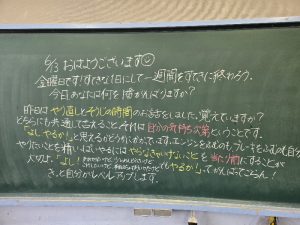 6/13 おはようございます
金曜日です！すてきな1日にして一週間をすてきに終わろう。
今日あなたは何を
昨日はやり直しとそうじの時間のお話をしました。覚えていますか？
どちらにも共通して言えること、それは自分の気持ち次第ということです。
「よしやるか！」と思えるかどうかにかかっています。エンジンをふむのもブレーキをふむのも自分
やりたいことを精いっぱいやるにはやらなきゃいけないことを当たり前にすることが
大切よ。「よし！ でもやるか！」ってがんばってごらん！
きっと自分がレベルアップします。